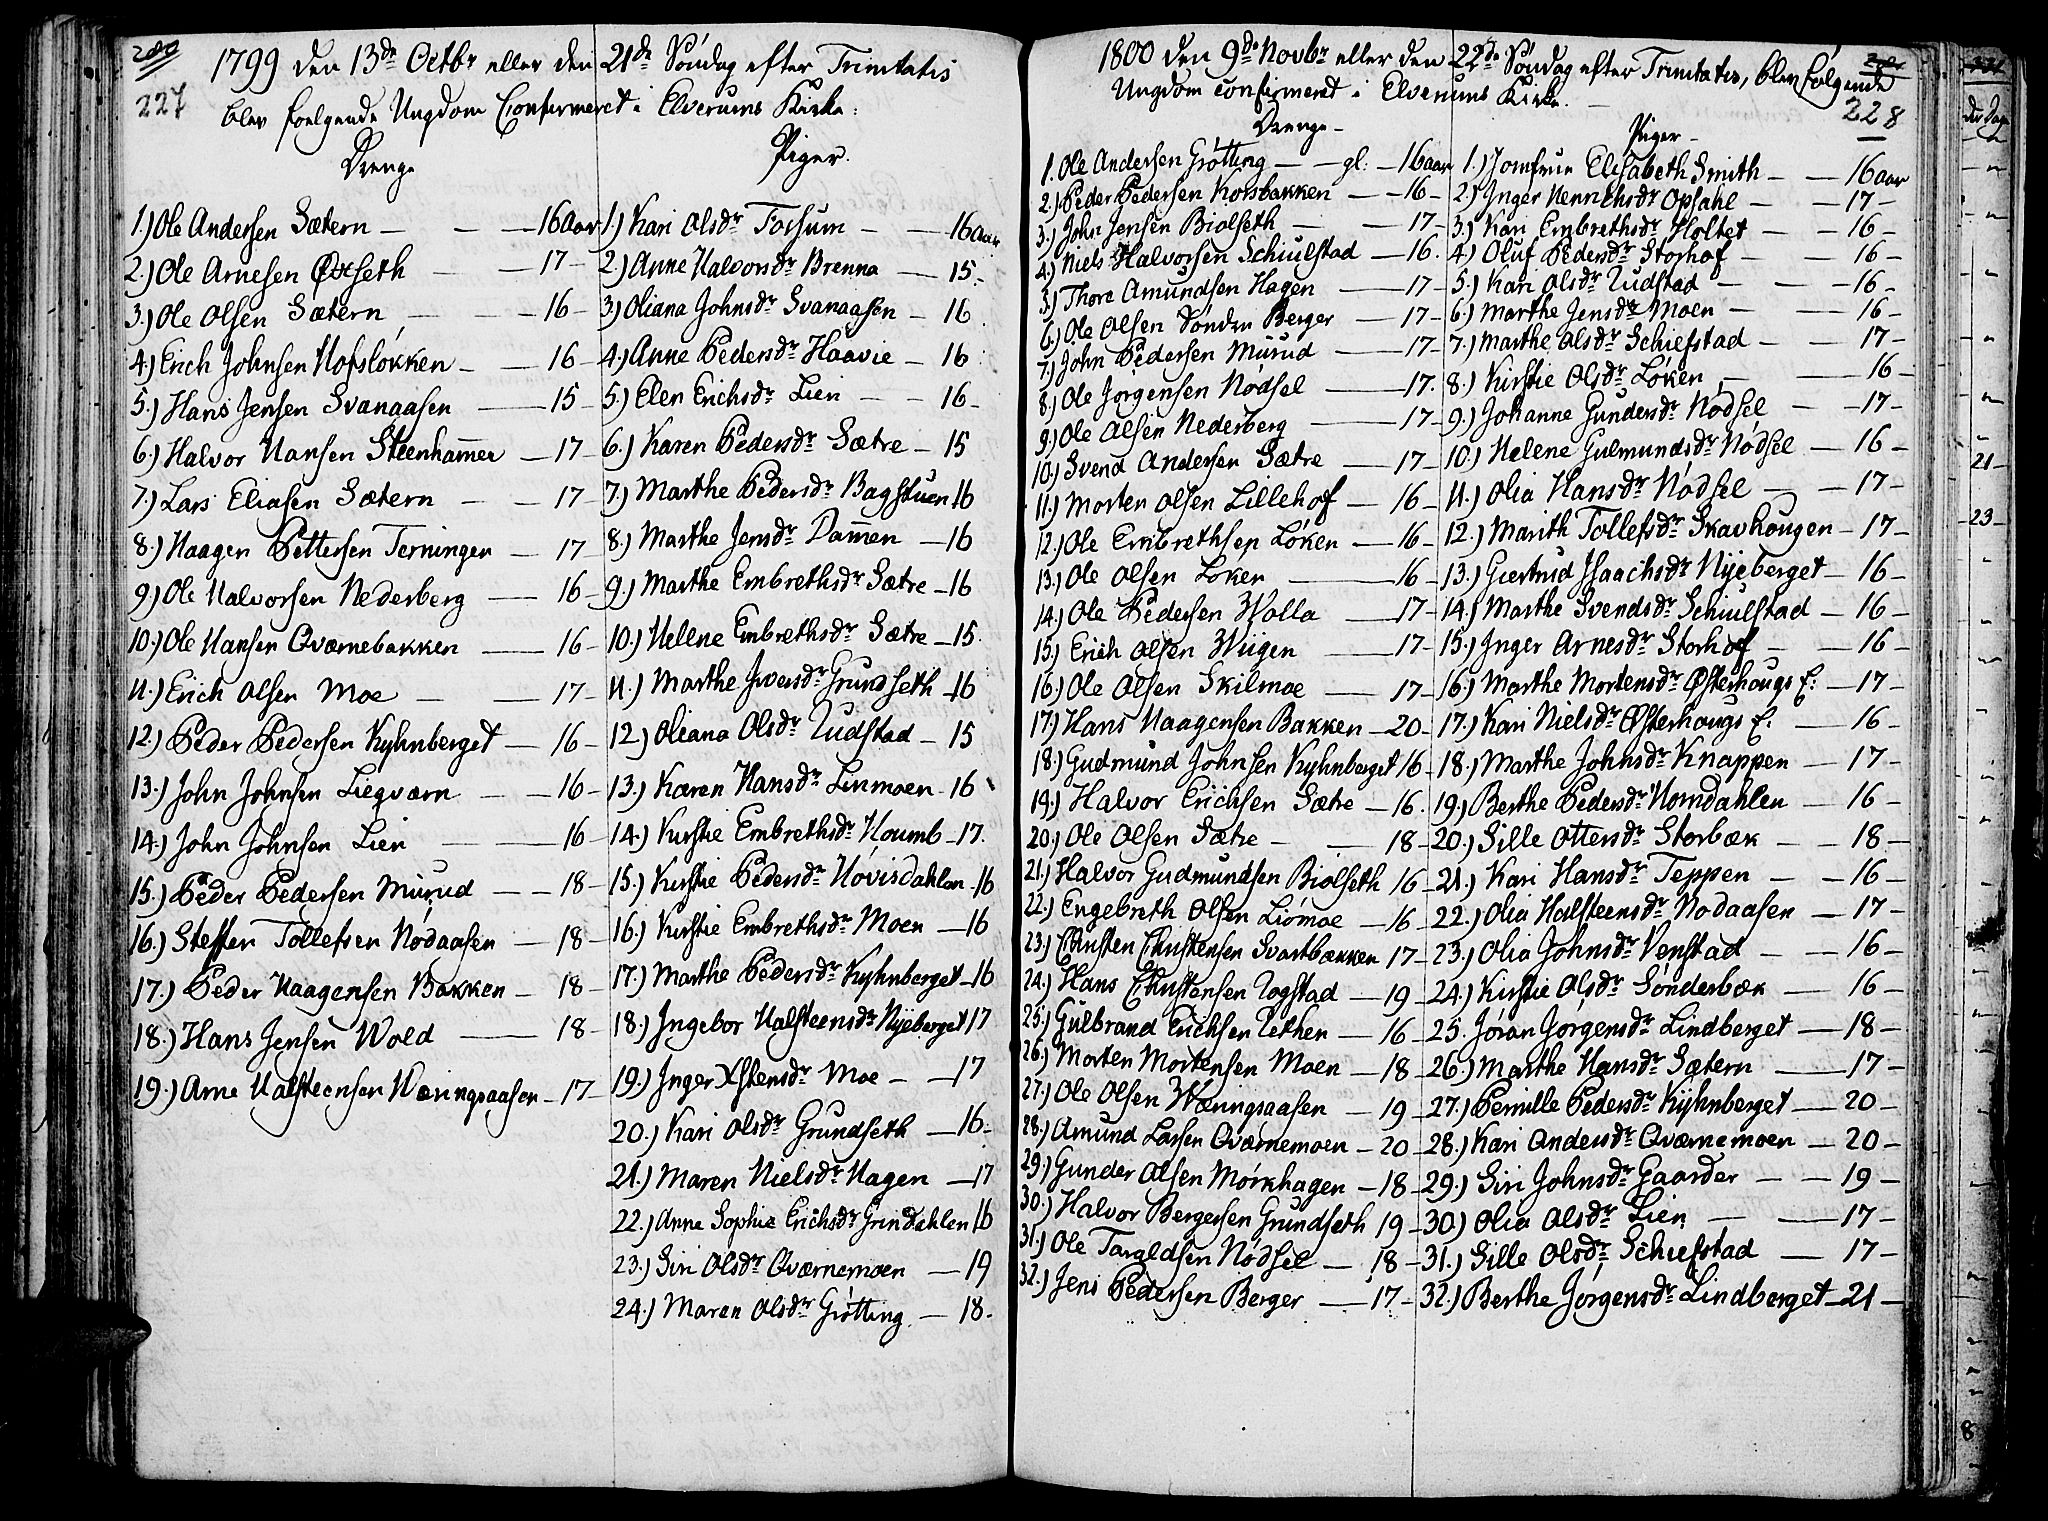 280
227
1799 den 13de Octbr eller den 21de Søndag efter Trinitatis
blev foelgende Ungdom Confirmeret i Elverums Kirke:
Drenge
1.) Ole Andersen Sætern — — — 16 Aar
2.) Ole Arnesen — — 17 –
3.) Ole Olsen Sætern — — 16 –
4.) Erich Johnsen Hofsløkken – — 16 –
5.) Hans Jensen Svanaasen — 15 –
6.) Halvor Hansen Steenhammer — 17 –
7.) Lars Eliasen Sætern — — 17 –
8.) Haagen Pettersen Terningen — 17 –
9.) Ole Halvorsen Nederberg — 16 –
10.) Ole Hansen Qværnebakken — 16 –
11.) Erich Olsen Moe — — 17 –
12.) Peder Pedersen Kyhnberget — 16 –
13.) John Johnsen Liegværn — — 16 –
14.) John Johnsen Lien — — 16
15.) Peder Pedersen Murud — — 18 –
16.) Steffen Tollefsen Nødaasen — 18 –
17.) Peder Haagensen Bakken — 18 –
18.) Hans Jensen Wold — 18 –
19.) Arne Halsteensen Væringsaasen – 17 –
Piger.
1.) Kari Olsdr Fossum — — 16 Aar
2.) Anne Halvorsdr Brenna — 15 –
3.) Oliana Johnsdr Svanaasen – 16
4.) Anne Pedersdr Haavie — 16
5.) Elen Erichsdr Lien — — 16 –
6.) Karen Pedersdr Sætre – 15
7.) Marthe Pedersdr Bagstuen 16
8.) Marthe Jensdr Dammen — 16
9.) Marthe Embrethsdr Sætre – 16
10.) Helene Embrethsdr Sætre – 15
11.) Marthe Iversdr Grundseth – 16
12.) Oliana Olsdr Rudstad – 15
13.) Karen Hansdr Linmoen – 16
14.) Kirstie Embrethsdr Houmb – 17.
15.) Kirstie Pedersdr Høvisdahlen – 16
16.) Kirstie Embrethsdr Moen — 16
17.) Marthe Pedersdr Kyhnberget – 16
18.) Ingebor Halsteensdr Nyeberget 17
19.) Inger Xstensdr Moe – — 17
20.) Kari Olsdr Grundseth — 16 –
21.) Maren Nielsdr Hagen — 17
22.) Anne Sophie Erichsdr Grindahlen 16
23.) Siri Olsdr Qværnemoen — 19
24.) Maren Olsdr Grøtting — 18.
228
1800 den 9de Novbr eller den 22de Søndag efter Trinitatis, blev følgende
Ungdom confirmeret i Elverums Kirke.
Drenge –
1. Ole Andersen Grøtting — — gl. – 16 aar
2.) Peder Pedersen Korsbakken — 16 –
3.) John Jensen Biolseth — — 17 –
4.) Niels Halvorsen Schiulstad — 16.
5.) Thore Amundsen Hagen — 17 –
6.) Ole Olsen Søndre Berger — 17 –
7.) John Pedersen Murud — 17 –
8.) Ole Jørgensen Nødsel — 17.
9.) Ole Olsen Nederberg — 17 –
10.) Svend Andersen Sætre — 17 –
11.) Morten Olsen Lillehof — 16 –
12.) Ole Embrethsen Løken — 16 –
13.) Ole Olsen Løken — 16 –
14.) Ole Pedersen Wolla — 17 –
15.) Erich Olsen Wiigen — 17 –
16.) Ole Olsen Skilmoe — 17 –
17.) Hans Haagensen Bakken – 20 –
18.) Gudmund Johnsen Kyhnberget 16 –
19.) Halvor Erichsen Sætre — 16.
20.) Ole Olsen Sætre – — 18 –
21.) Halvor Gudmundsen Biolseth 16 –
22.) Engebreth Olsen Liømoe — 16 –
23.) Christen Christensen Svartbækken 17 –
24.) Hans Christensen Rogstad — 19 –
25.) Gulbrand Erichsen — 16 –
26.) Morten Mortensen Moen — 18 –
27.) Ole Olsen Wæringsaasen — 19 –
28.) Amund Larsen Qværnemoen – 20 –
29.) Gunder Olsen Mørkhagen – 18 –
30.) Halvor Bergersen Grundseth 19 –
31.) Ole Taraldsen Nødsel — 18 –
32.) Jens Pedersen Berger — 17 –
Piger –
1.) Jomfrue Elisabeth Smith – — 16 aar
2.) Inger Henrichsdr Opsahl – — 17 –
3.) Kari Embrethsdr Holtet – — 16 –
4.) Oluf Pedersdr Storhof – — 16 –
5.) Kari Olsdr Rudstad – — 16 –
6.) Marthe Jensdr Moen – — 16 –
7.) Marthe Olsdr Schiefstad — 17 –
8.) Kirstie Olsdr Løken – — 16 –
9.) Johanne Gundersdr Nødsel – 17 –
10.) Helene Gulmundsdr Nødsel – 16 –
11.) Olia Hansdr Nødsel – — 17 –
12.) Marith Tollefsdr Skavhougen – 17 –
13.) Giertrud Isaachsdr Nyeberget – 16 –
14.) Marthe Svendsdr Schiulstad — 16 –
15.) Inger Arnesdr Storhof – — 16
16.) Marthe Mortensdr Østerhougs E: — 17 –
17.) Kari Nielsdr Østerhougs E. — 16 –
18.) Marthe Johnsdr Knappen — 17 –
19.) Berthe Pedersdr Horndahlen — 16 –
20.) Sille Ottersdr Storbæk — — 18 –
21.) Kari Hansdr Teppen — — 16 –
22.) Olia Halsteensdr Nodaasen — 17 –
23.) Olia Johnsdr Venstad – — 16 –
24.) Kirstie Olsdr Sønderbæk — 16 –
25. Jøran Jørgensdr Lindberget — 18 –
26.) Marthe Hansdr Sætern — 17 –
27.) Pernille Pedersdr Kyhnberget — 20 –
28.) Kari Andersdr Qværnemoen — 20 –
29.) Siri Johnsdr Gaarder – — 19 –
30.) Olia Olsdr Lien — — 17 –
31.) Sille Olsdr Schiefstad — 17 –
32.) Berthe Jørgensdr Lindberget – 21 –
21
23
8